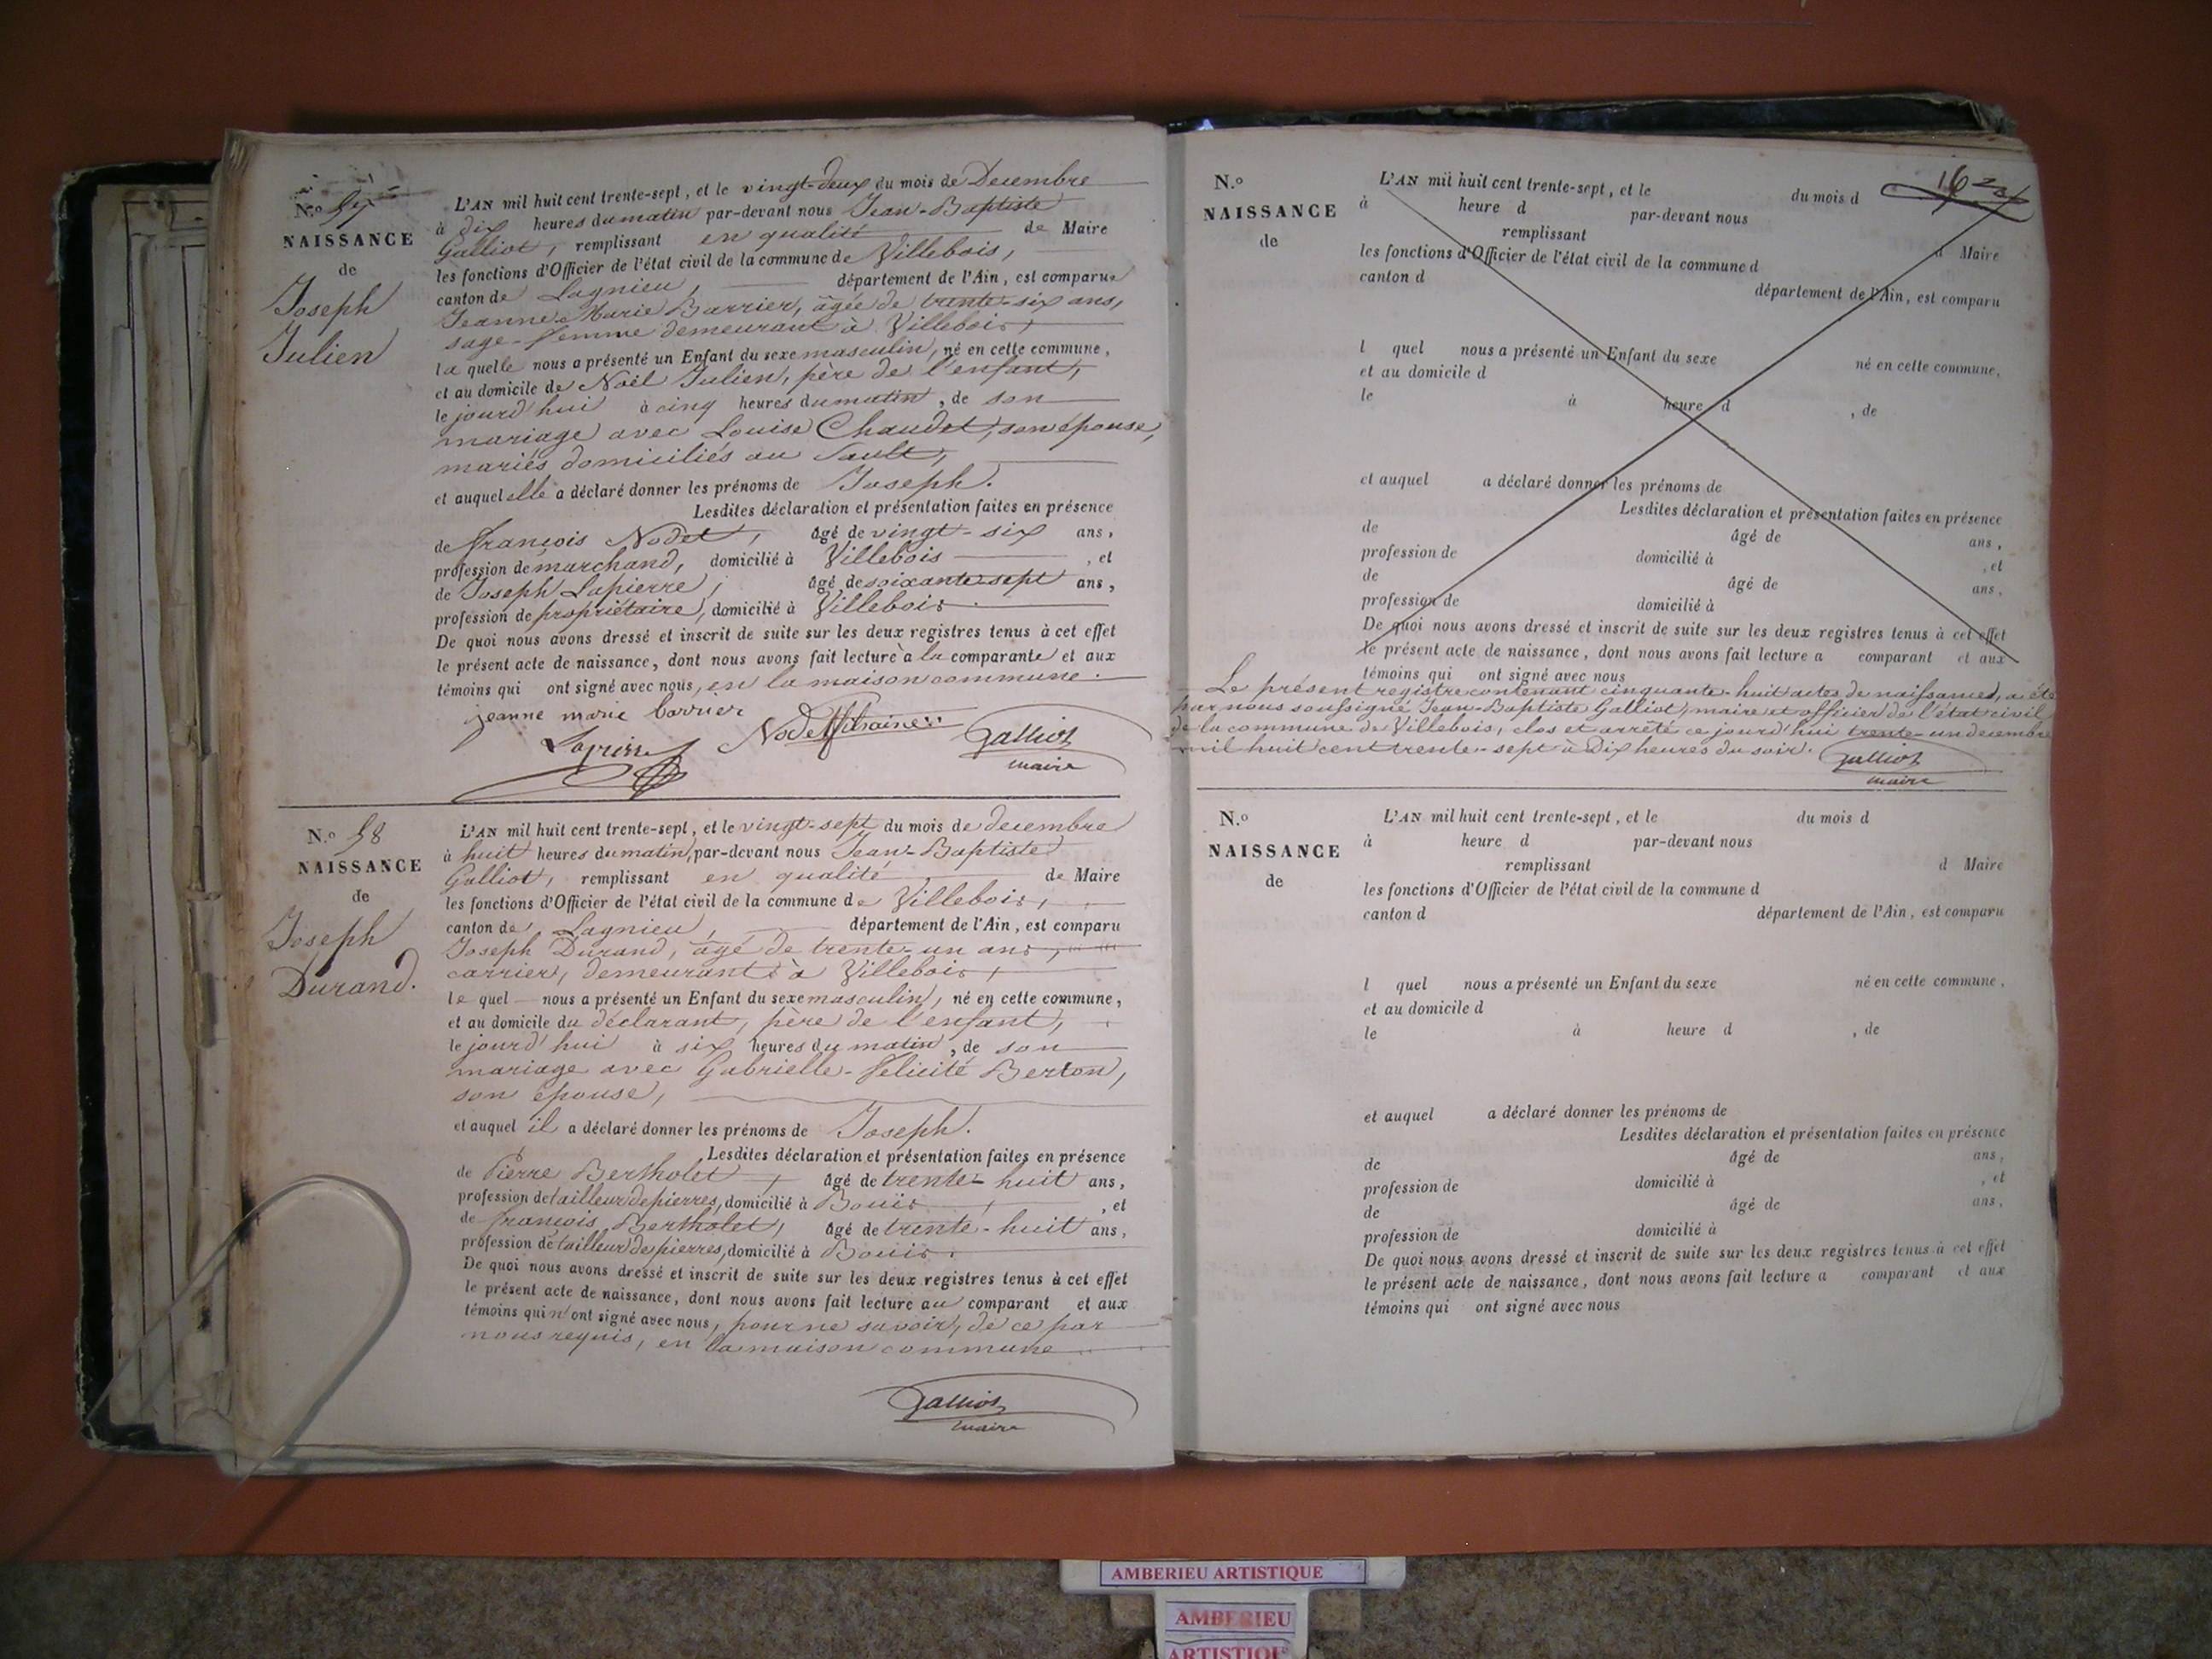 N.o 57
NAISSANCE
de
Joseph
Julien
L'AN mil huit cent trente-sept, et le vingt-deux du mois de Decembre
à dix heures du matin par-devant nous Jean-Baptiste
Galliot, remplissant en qualité de Maire
les fonctions d'Officier de l'état civil de la commune de Villebois,
canton de Lagnieu, département de l'Ain, est comparue
Jeanne-Marie Barrier, âgée de trente-six ans,
sage-femme demeurant à Villebois,
la quelle nous a présenté un Enfant du sexe masculin, né en cette commune,
et au domicile de Noël Julien, père de l'enfant,
le jourd'hui à cinq heures du matin, de son
mariage avec Louise Chaudet, son épouse,
mariés domiciliés au Sault,
et auquel elle a déclaré donner les prénoms de Joseph.
Lesdites déclaration et présentation faites en présence
de françois Nodet, âgé de vingt-six ans,
profession de marchand, domicilié à Villebois, et
de Joseph Lapierre, âgé de soixante-sept ans,
profession de propriétaire, domicilié à Villebois.
De quoi nous avons dressé et inscrit de suite sur les deux registres tenus à cet effet
le présent acte de naissance, dont nous avons fait lecture à la comparante et aux
témoins qui ont signé avec nous, en la maison commune.
jeanne marie barrier
Galliot
maire
N.o 58
NAISSANCE
de
Joseph
Durand.
L'AN mil huit cent trente-sept, et le vingt-sept du mois de decembre
à huit heures du matin, par-devant nous Jean-Baptiste
Galliot, remplissant en qualité de Maire
les fonctions d'Officier de l'état civil de la commune de Villebois,
canton de Lagnieu, département de l'Ain, est comparu
Joseph Durand, âgé de trente-un ans,
carrier, demeurant à Villebois,
le quel nous a présenté un Enfant du sexe masculin, né en cette commune,
et au domicile du déclarant, père de l'enfant,
le jourd'hui à six heures du matin, de son
mariage avec Gabrielle-Felicité Berton,
son épouse,
et auquel il a déclaré donner les prénoms de Joseph.
Lesdites déclaration et présentation faites en présence
de Pierre Bertholet, âgé de trente-huit ans,
profession de tailleur de pierres, domicilié à Bouis, et
de françois Bertholet, âgé de trente-huit ans,
profession de tailleur de pierres, domicilié à Bouis.
De quoi nous avons dressé et inscrit de suite sur les deux registres tenus à cet effet
le présent acte de naissance, dont nous avons fait lecture au comparant et aux
témoins qui n'ont signé avec nous, pour ne savoir, de ce par
nous requis, en la maison commune
Galliot
maire
N.o
NAISSANCE
de
L'AN mil huit cent trente-sept, et le du mois d
à heure d par-devant nous
remplissant d Maire
les fonctions d'Officier de l'état civil de la commune d
canton d département de l'Ain, est comparu
l quel nous a présenté un Enfant du sexe né en cette commune,
et au domicile d
le à heure d , de
et auquel a déclaré donner les prénoms de
Lesdites déclaration et présentation faites en présence
de âgé de ans,
profession de domicilié à , et
de âgé de ans,
profession de domicilié à
De quoi nous avons dressé et inscrit de suite sur les deux registres tenus à cet effet
le présent acte de naissance, dont nous avons fait lecture a comparant et aux
témoins qui ont signé avec nous
Le présent registre contenant cinquante-huit actes de naissances, a été
par nous soussigné Jean-Baptiste Galliot, maire et officier de l'état civil
de la commune de Villebois, clos et arrêté ce jourd'hui trente-un decembre
mil huit cent trente-sept à Dix heures du soir.
Galliot
maire
N.o
NAISSANCE
de
L'AN mil huit cent trente-sept, et le du mois d
à heure d par-devant nous
remplissant d Maire
les fonctions d'Officier de l'état civil de la commune d
canton d département de l'Ain, est comparu
l quel nous a présenté un Enfant du sexe né en cette commune,
et au domicile d
le à heure d , de
et auquel a déclaré donner les prénoms de
Lesdites déclaration et présentation faites en présence
de âgé de ans,
profession de domicilié à , et
de âgé de ans,
profession de domicilié à
De quoi nous avons dressé et inscrit de suite sur les deux registres tenus à cet effet
le présent acte de naissance, dont nous avons fait lecture a comparant et aux
témoins qui ont signé avec nous
AMBERIEU ARTISTIQUE
AMBERIEU
ARTISTIQUE